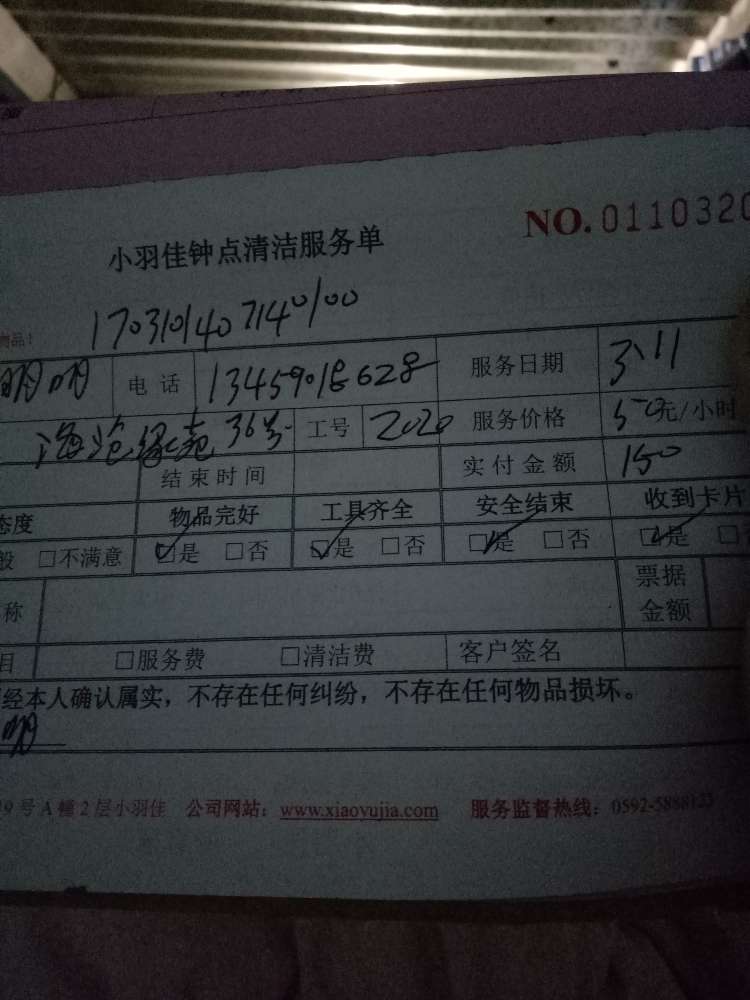 NO.0110320
小羽佳钟点清洁服务单
1703101407140100
明明 电话 13459018628 服务日期 3.11
海沧绿苑36号 工号 2020 服务价格 50元/小时
结束时间 实付金额 150
态度 物品完好 工具齐全 安全结束 收到卡片
般 □不满意 ☑是 □否 ☑是 □否 ☑是 □否 ☑是 □
称 票据金额
目 □服务费 □清洁费 客户签名
经本人确认属实，不存在任何纠纷，不存在任何物品损坏。
明
9号A幢2层小羽佳 公司网站：www.xiaoyujia.com 服务监督热线：0592-5888123